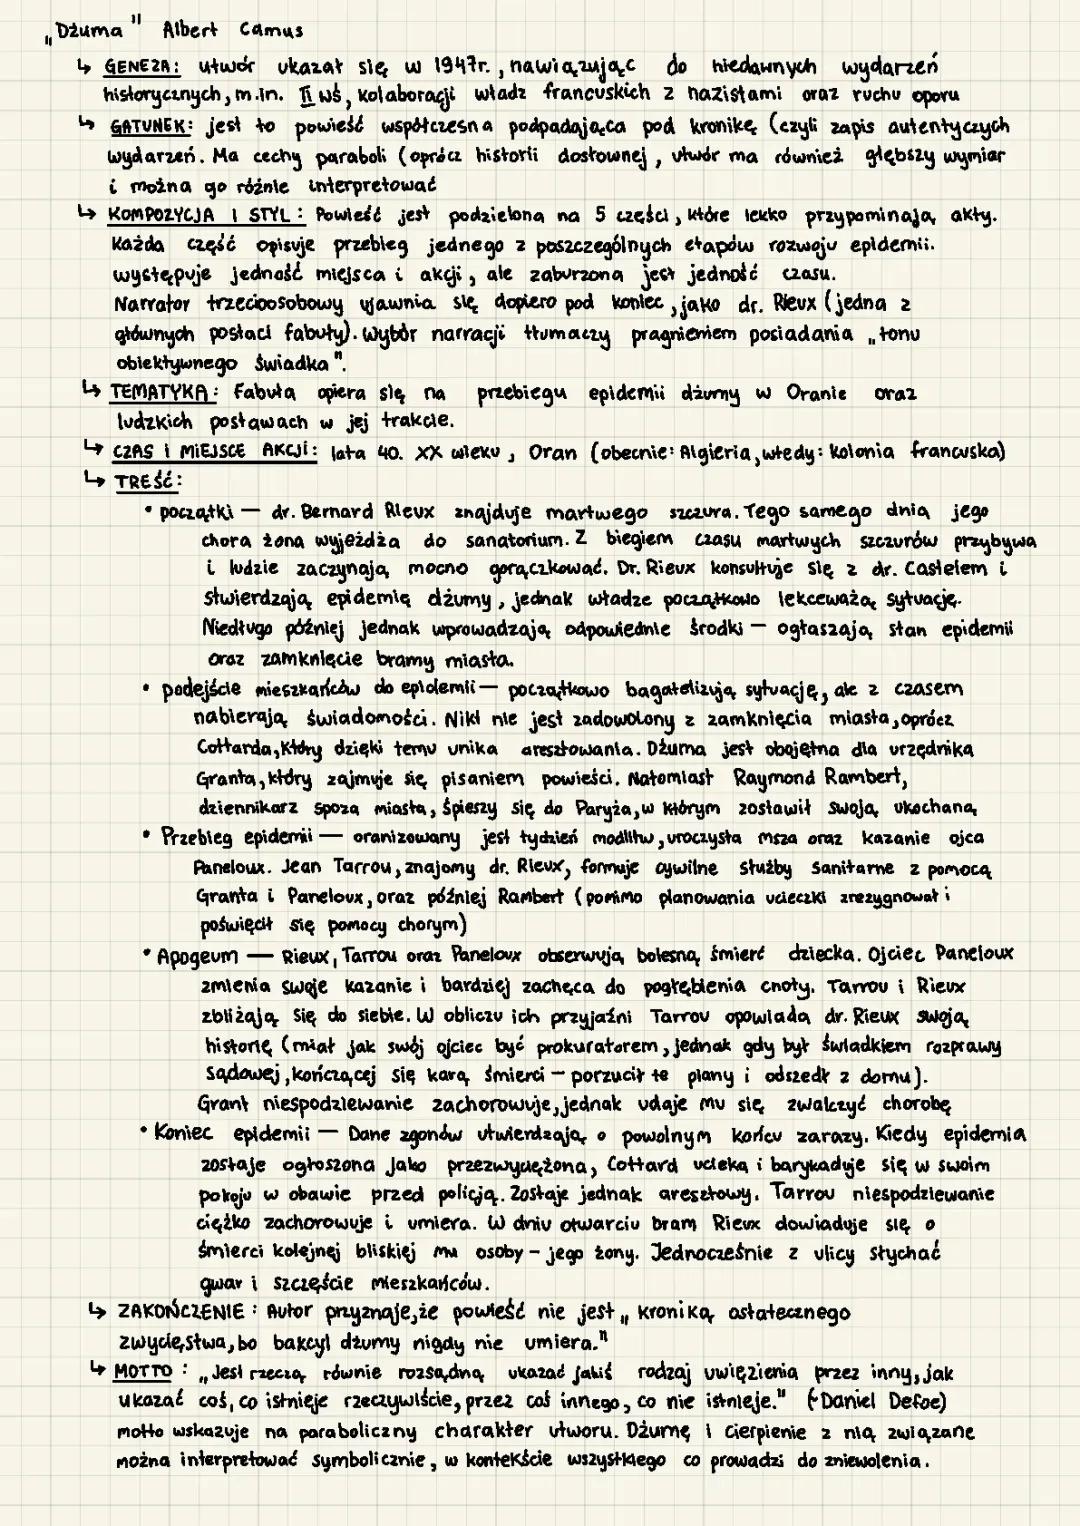 „Dżuma" Albert Camus
↳ GENEZA: utwór ukazał się w 1947r., nawiązując do niedawnych wydarzeń
historycznych, m.in. II wś, kolaboracji władz francuskich z nazistami oraz ruchu oporu
↳ GATUNEK: jest to powieść współczesna podpadająca pod kronikę (czyli zapis autentyczych
wydarzeń. Ma cechy paraboli (oprócz historii dosłownej, utwór ma również głębszy wymiar
i można go różnie interpretować
↳ KOMPOZYCJA I STYL: Powieść jest podzielona na 5 części, które lekko przypominają akty.
Każda część opisuje przebieg jednego z poszczególnych etapów rozwoju epidemii.
występuje jedność miejsca i akcji, ale zaburzona jest jedność czasu.
Narrator trzecioosobowy ujawnia się dopiero pod koniec, jako dr. Rieux (jedna z
głównych postaci fabuły). Wybór narracji tłumaczy pragnieniem posiadania „tonu
obiektywnego świadka".
↳ TEMATYKA: Fabuła opiera się na przebiegu epidemii dżumy w Oranie oraz
ludzkich postawach w jej trakcie.
↳ CZAS I MIEJSCE AKCJI: lata 40. XX wieku, Oran (obecnie: Algieria, wtedy: kolonia francuska)
↳ TREŚĆ:
• początki — dr. Bernard Rieux znajduje martwego szczura. Tego samego dnia jego
chora żona wyjeżdża do sanatorium. Z biegiem czasu martwych szczurów przybywa
i ludzie zaczynają mocno gorączkować. Dr. Rieux konsultuje się z dr. Castelem i
stwierdzają epidemię dżumy, jednak władze początkowo lekceważą sytuację.
Niedługo później jednak wprowadzają odpowiednie środki — ogłaszają stan epidemii
oraz zamknięcie bramy miasta.
• podejście mieszkańców do epidemii — początkowo bagatelizują sytuację, ale z czasem
nabierają świadomości. Nikt nie jest zadowolony z zamknięcia miasta, oprócz
Cottarda, który dzięki temu unika aresztowania. Dżuma jest obojętna dla urzędnika
Granta, który zajmuje się pisaniem powieści. Natomiast Raymond Rambert,
dziennikarz spoza miasta, śpieszy się do Paryża, w którym zostawił swoją ukochaną
• Przebieg epidemii — oranizowany jest tydzień modlitw, uroczysta msza oraz kazanie ojca
Paneloux. Jean Tarrou, znajomy dr. Rieux, formuje cywilne służby sanitarne z pomocą
Granta i Paneloux, oraz później Rambert (pomimo planowania ucieczki zrezygnował i
poświęcił się pomocy chorym)
• Apogeum — Rieux, Tarrou oraz Paneloux obserwują bolesną śmierć dziecka. Ojciec Paneloux
zmienia swoje kazanie i bardziej zachęca do pogłębienia cnoty. Tarrou i Rieux
zbliżają się do siebie. W obliczu ich przyjaźni Tarrou opowiada dr. Rieux swoją
historię (miał jak swój ojciec być prokuratorem, jednak gdy był świadkiem rozprawy
sądowej, kończącej się karą śmierci — porzucił te plany i odszedł z domu).
Grant niespodziewanie zachorowuje, jednak udaje mu się zwalczyć chorobę
• Koniec epidemii — Dane zgonów utwierdzają o powolnym końcu zarazy. Kiedy epidemia
zostaje ogłoszona jako przezwyciężona, Cottard ucieka i barykaduje się w swoim
pokoju w obawie przed policją. Zostaje jednak aresztowy. Tarrou niespodziewanie
ciężko zachorowuje i umiera. W dniu otwarciu bram Rieux dowiaduje się o
śmierci kolejnej bliskiej mu osoby – jego żony. Jednocześnie z ulicy słychać
gwar i szczęście mieszkańców.
↳ ZAKOŃCZENIE: Autor przyznaje, że powieść nie jest „kroniką ostatecznego
zwycięstwa, bo bakcyl dżumy nigdy nie umiera."
↳ MOTTO: „Jest rzeczą równie rozsądną ukazać jakiś rodzaj uwięzienia przez inny, jak
ukazać coś, co istnieje rzeczywiście, przez coś innego, co nie istnieje." (~Daniel Defoe)
motto wskazuje na paraboliczny charakter utworu. Dżumę i cierpienie z nią związane
można interpretować symbolicznie, w kontekście wszystkiego co prowadzi do zniewolenia.